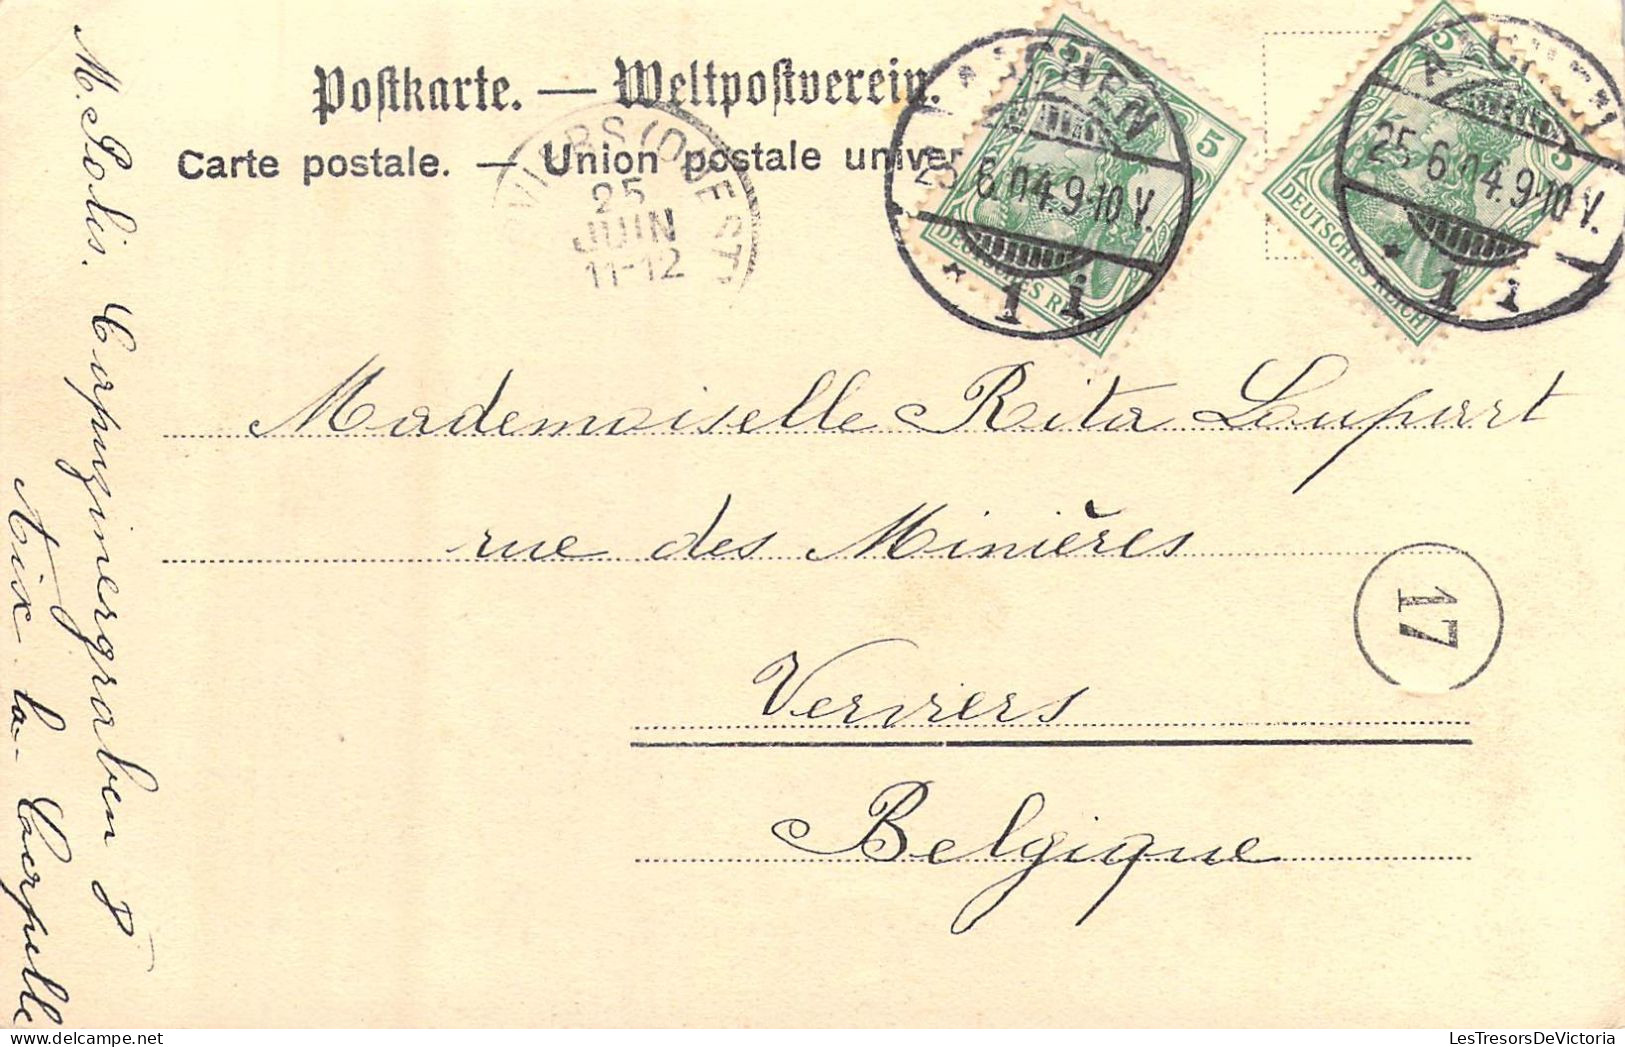 Postkarte. — Weltpostverein.
Carte postale. — Union postale univer
VIERS (OUEST)
25
JUIN
11-12
AACHEN
25.6.04.9-10 V.
* 1 i
5
DEUTSCHES REICH
AACHEN
25.6.04.9-10 V.
* 1 i
5
5
DEUTSCHES REICH
Mademoiselle Rita Loupart
rue des Minières
17
Verviers
Belgique
M. Polis. Carpuzinergraben 8
Aix-la-Chapelle
LesTresorsDeVictoria